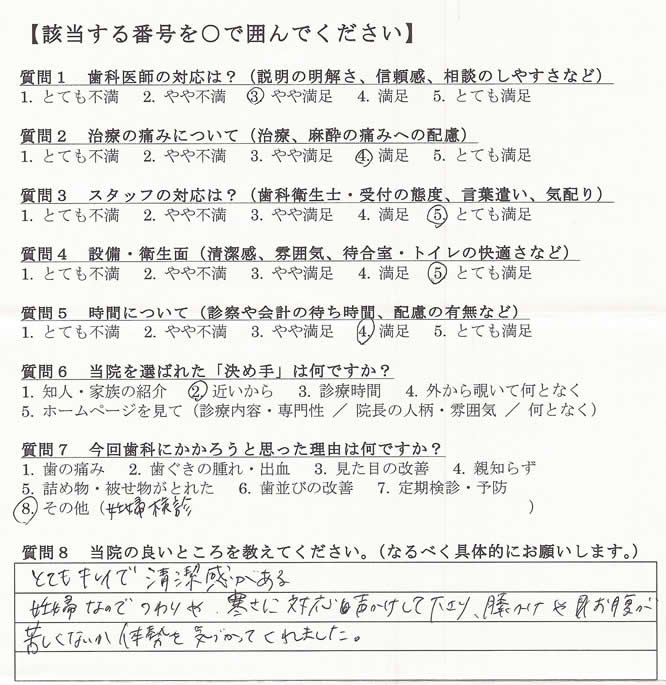 【該当する番号を〇で囲んでください】
質問1 歯科医師の対応は?(説明の明解さ、信頼感、相談のしやすさなど)
1. とても不満 2. やや不満 3. やや満足 4. 満足 5. とても満足
質問2 治療の痛みについて(治療、麻酔の痛みへの配慮)
1. とても不満 2. やや不満 3. やや満足 4. 満足 5. とても満足
質問3 スタッフの対応は?(歯科衛生士・受付の態度、言葉遣い、気配り)
1. とても不満 2. やや不満 3. やや満足 4. 満足 5. とても満足
質問4 設備・衛生面(清潔感、雰囲気、待合室・トイレの快適さなど)
1. とても不満 2. やや不満 3. やや満足 4. 満足 5. とても満足
質問5 時間について(診察や会計の待ち時間、配慮の有無など)
1. とても不満 2. やや不満 3. やや満足 4. 満足 5. とても満足
質問6 当院を選ばれた「決め手」は何ですか?
1. 知人・家族の紹介 2. 近いから 3. 診療時間 4. 外から覗いて何となく
5. ホームページを見て(診療内容・専門性 / 院長の人柄・雰囲気 / 何となく)
質問7 今回歯科にかかろうと思った理由は何ですか?
1. 歯の痛み 2. 歯ぐきの腫れ・出血 3. 見た目の改善 4. 親知らず
5. 詰め物・被せ物がとれた 6. 歯並びの改善 7. 定期検診・予防
8. その他(妊婦検診 )
質問8 当院の良いところを教えてください。(なるべく具体的にお願いします。)
とてもキレイで清潔感がある
妊婦なのでつわりや、寒さに対応 声かけして下さり、膝かけや お腹が
苦しくないか体勢を気づかってくれました。